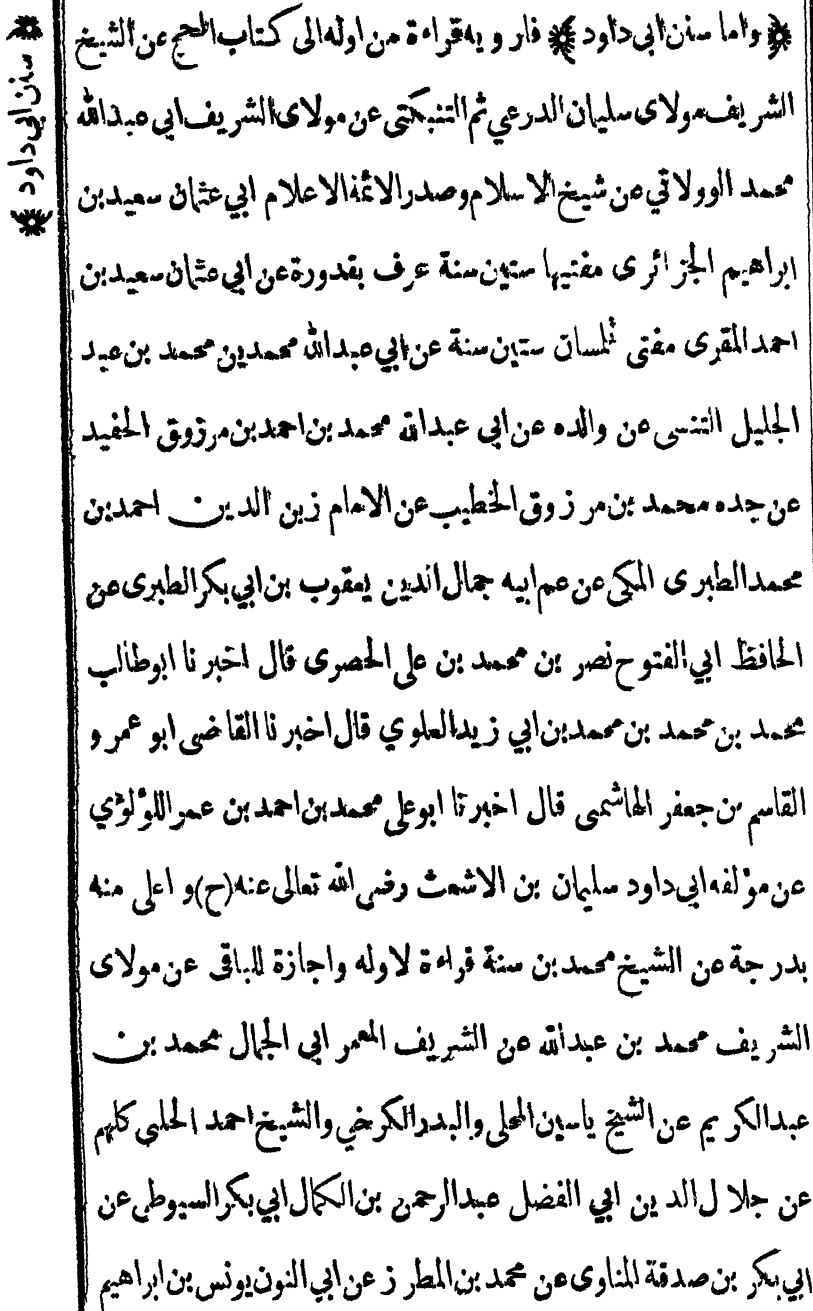 ﴿ واما سنن ابي داود ﴾ فارويه قراءة من اوله الى كتاب الحج عن الشيخ
الشريف مولاى سليمان الدرعي ثم التنبكتى عن مولاى الشريف ابي عبدالله
محمد الوولاتي عن شيخ الاسلام وصدر الائمة الاعلام ابي عثمان سعيد بن
ابراهيم الجزائرى مفتيها ستين سنة عرف بقدورة عن ابي عثمان سعيد بن
احمد المقرى مفتى تلمسان ستين سنة عن ابي عبدالله محمد بن محمد بن عبد
الجليل التنسى عن والده عن ابي عبدالله محمد بن احمد بن مرزوق الحفيد
عن جده محمد بن مرزوق الخطيب عن الامام زين الدين احمد بن
محمد الطبرى المكى عن عم ابيه جمال الدين يعقوب بن ابي بكر الطبرى عن
الحافظ ابي الفتوح نصر بن محمد بن على الحصرى قال اخبرنا ابوطالب
محمد بن محمد بن محمد بن ابي زيد العلوي قال اخبرنا القاضى ابو عمرو
القاسم بن جعفر الهاشمى قال اخبرنا ابوعلى محمد بن احمد بن عمر اللؤلؤي
عن مؤلفه ابى داود سليمان بن الاشعث رضى الله تعالى عنه (ح) و اعلى منه
بدرجة عن الشيخ محمد بن سنة قراءة لاوله واجازة للباقى عن مولاى
الشريف محمد بن عبدالله عن الشريف المعمر ابي الجمال محمد بن
عبدالكريم عن الشيخ ياسين المحلى والبدر الكرخي والشيخ احمد الحلبى كلهم
عن جلال الدين ابي الفضل عبدالرحمن بن الكمال ابي بكر السيوطى عن
ابي بكر بن صدقة المناوى عن محمد بن المطرز عن ابي النون يونس بن ابراهيم
﴿ سنن ابي داود ﴾